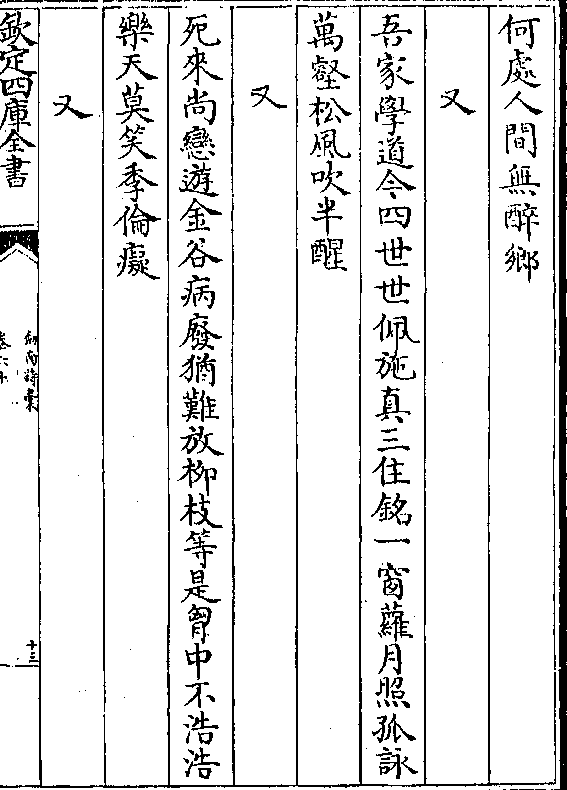 何處人間無醉鄉
又
吾家學道今四世世佩施真三住銘一窗蘿月照孤詠
萬壑松風吹半醒
又
死來尚戀遊金谷病廢猶難放柳枝等是胷中不浩浩
樂天莫笑季倫癡
又
欽定四庫全書
劍南詩稾
十三